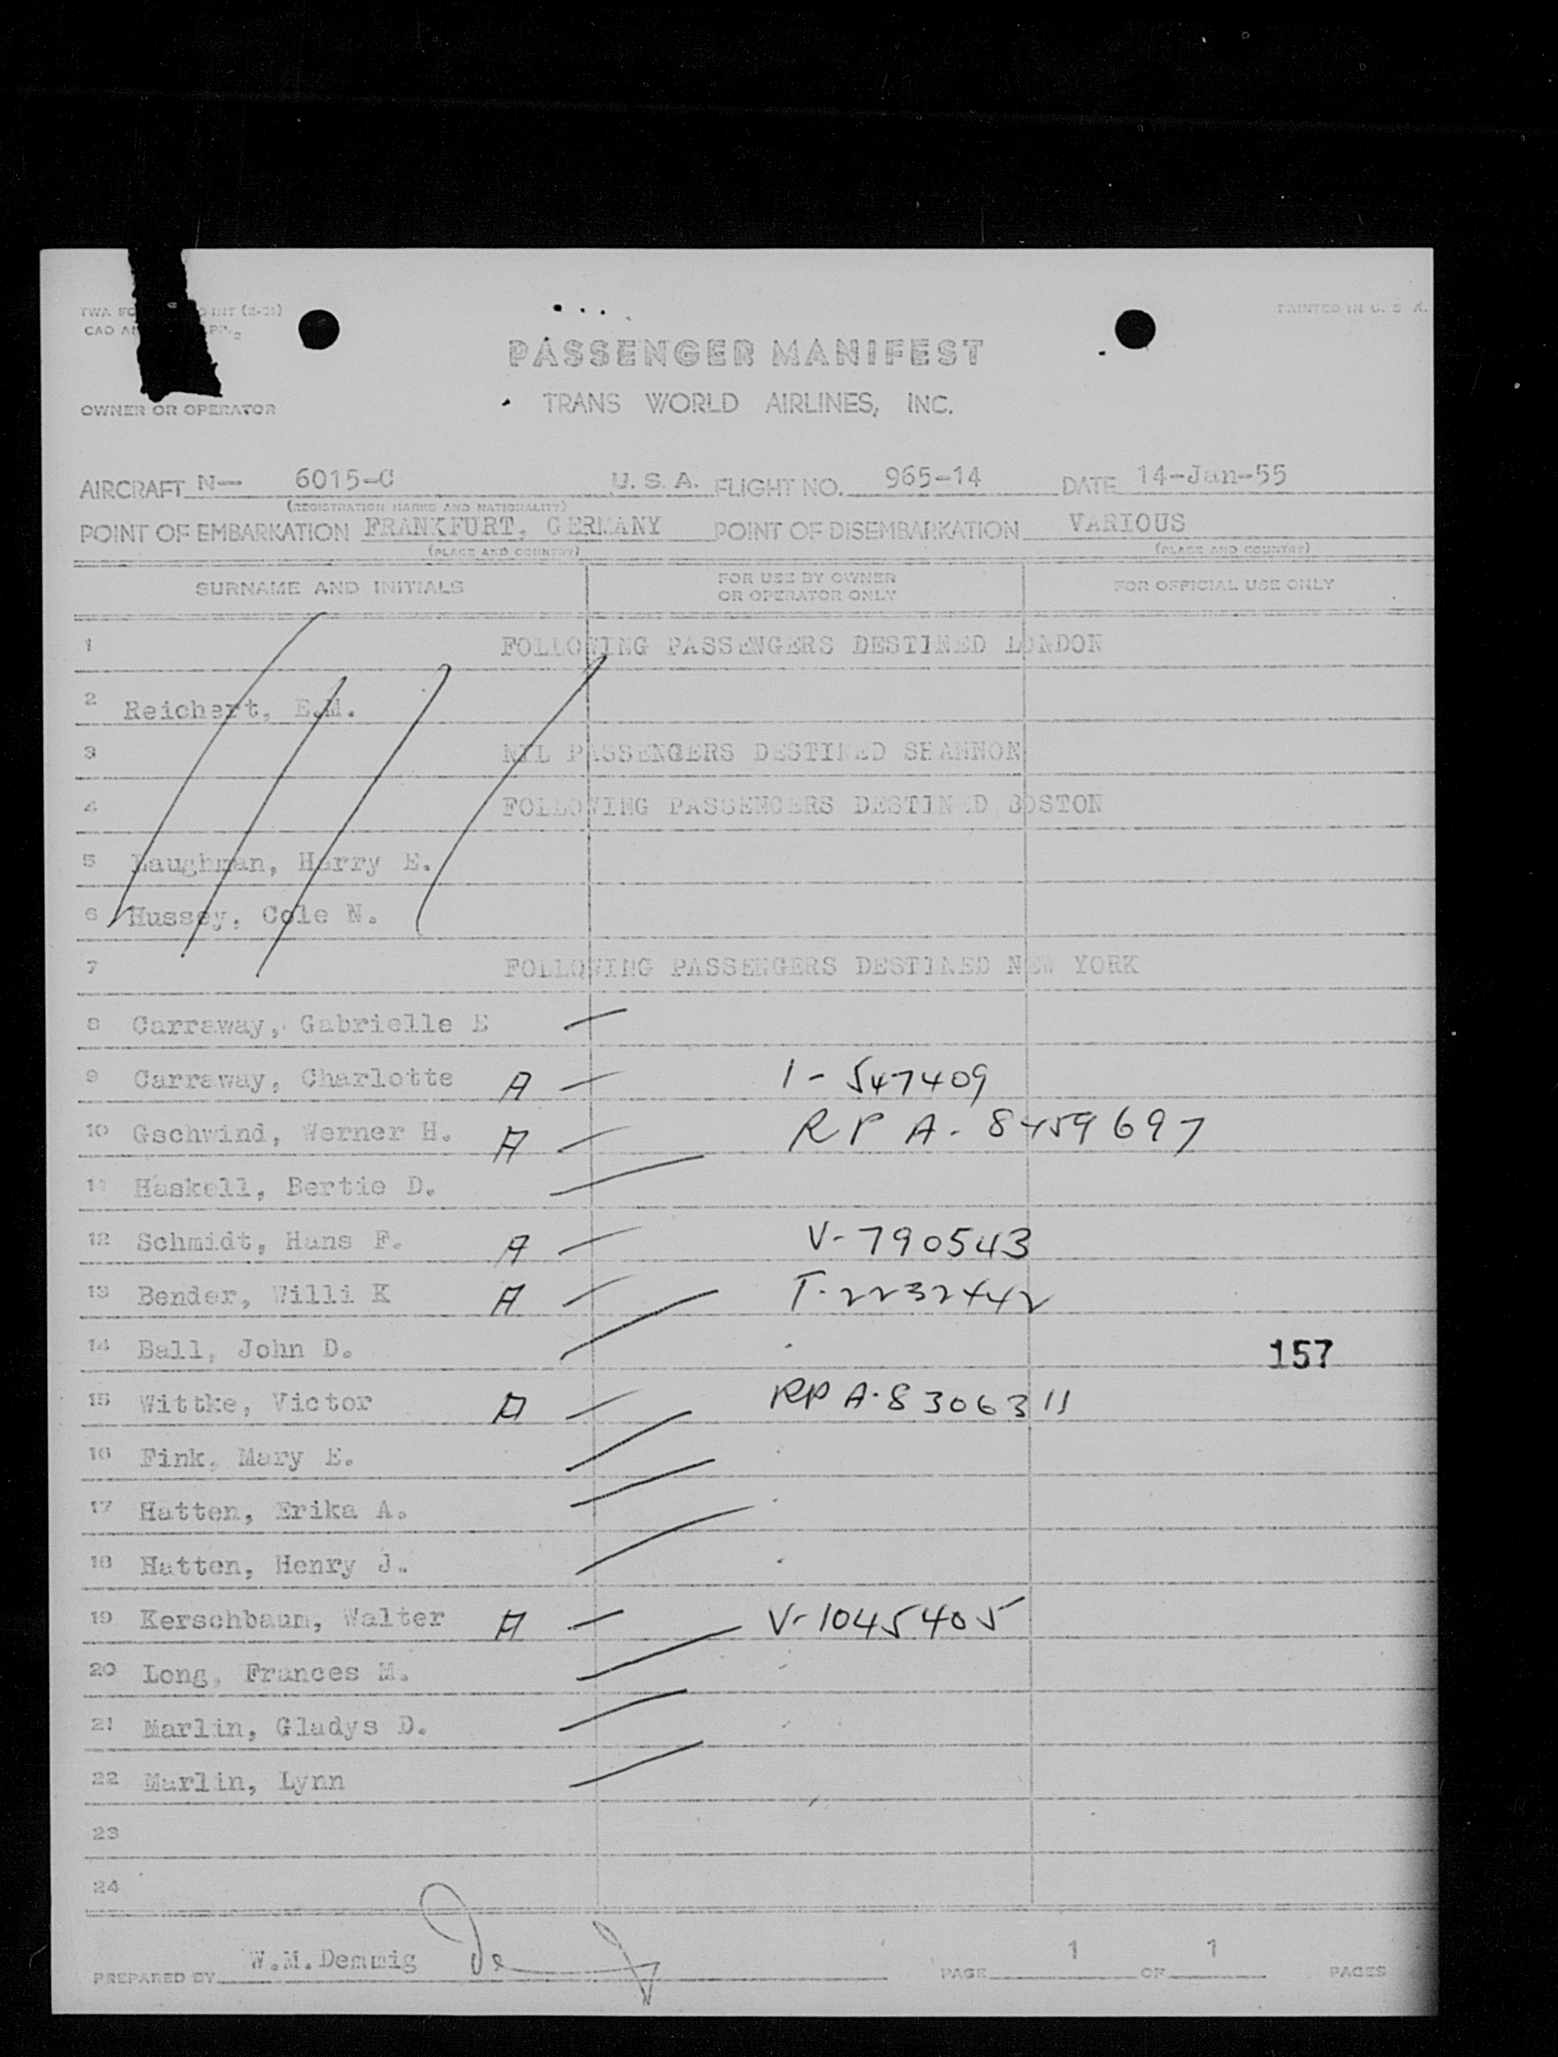 TWA FO
PRINTED IN U. S. A.
CAO AN
PASSENGER MANIFEST
OWNER OR OPERATOR
TRANS WORLD AIRLINES, INC.
AIRCRAFT N-- 6015-C U. S. A. FLIGHT NO. 965-14 DATE 14-Jan-55
(REGISTRATION MARKS AND NATIONALITY)
POINT OF EMBARKATION FRANKFURT, GERMANY POINT OF DISEMBARKATION VARIOUS
(PLACE AND COUNTRY) (PLACE AND COUNTRY)
SURNAME AND INITIALS FOR USE BY OWNER OR OPERATOR ONLY FOR OFFICIAL USE ONLY
1 FOLLOWING PASSENGERS DESTINED LONDON
2 Reichert, E.M.
3 NIL PASSENGERS DESTINED SHANNON
4 FOLLOWING PASSENGERS DESTINED BOSTON
5 Laughman, Harry E.
6 Hussey, Cole N.
7 FOLLOWING PASSENGERS DESTINED NEW YORK
8 Carraway, Gabrielle E
9 Carraway, Charlotte A 1-547409
10 Gschwind, Werner H. A RP A-8459697
11 Haskell, Bertie D.
12 Schmidt, Hans F. A V-790543
13 Bender, Willi K A T-2232442
14 Ball, John D.
157
15 Wittke, Victor A RP A-8306311
16 Fink, Mary E.
17 Hatten, Erika A.
18 Hatten, Henry J.
19 Kerschbaum, Walter A V-1045405
20 Long, Frances M.
21 Marlin, Gladys D.
22 Marlin, Lynn
23
24
PREPARED BY W.M.Demmig PAGE 1 OF 1 PAGES